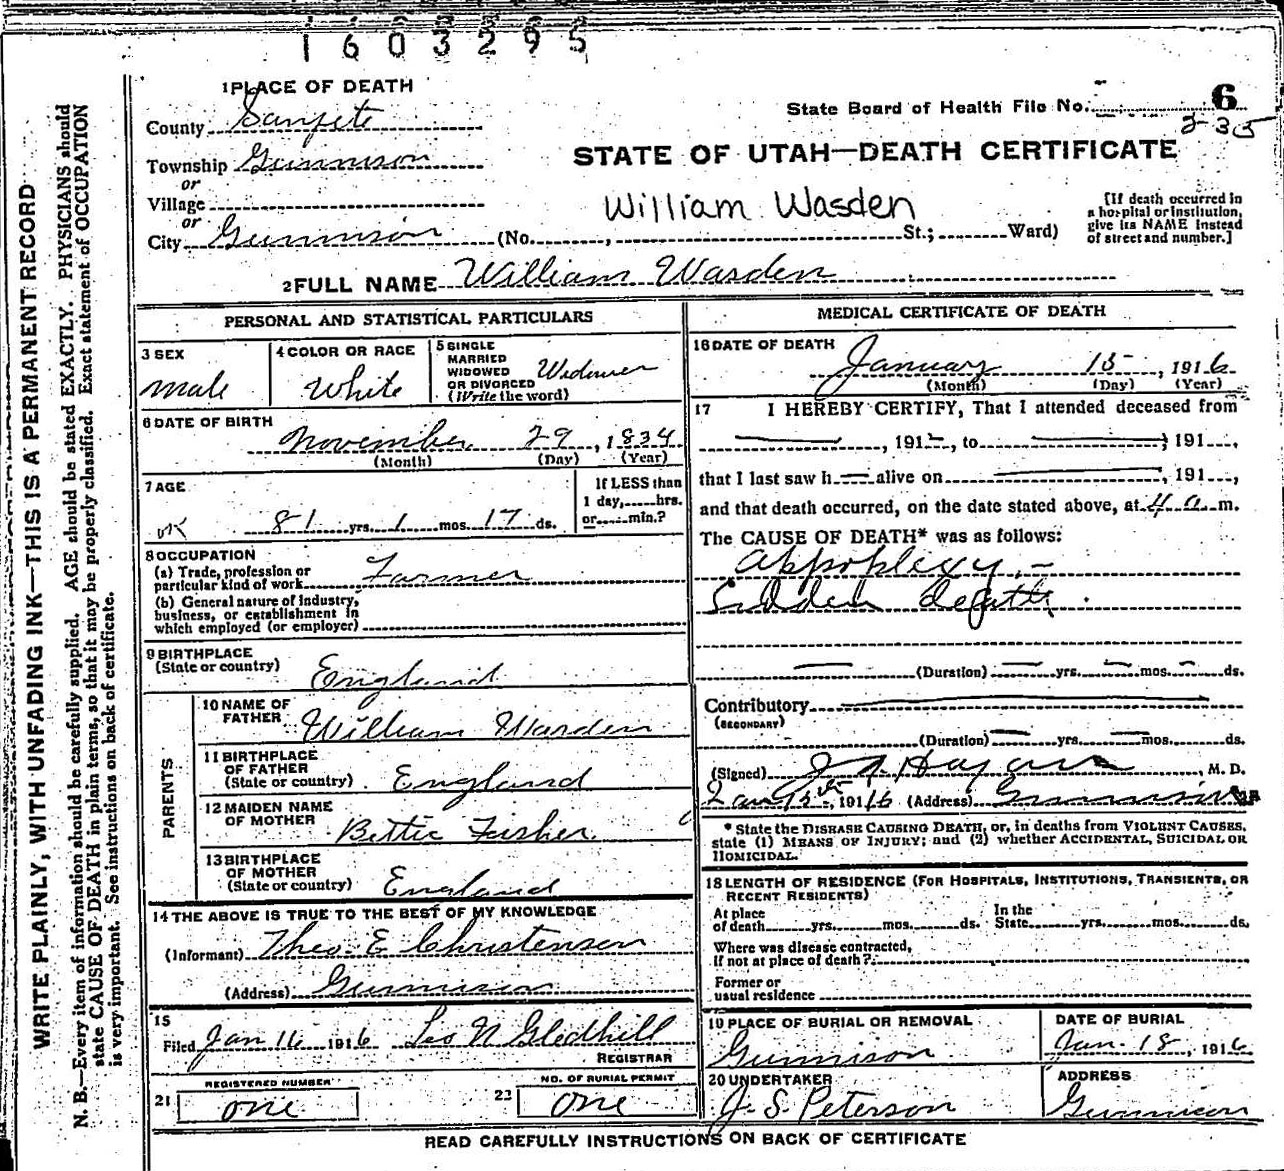 1603295
1 PLACE OF DEATH
State Board of Health File No. 6
235
County Sanpete
Township Gunnison
or
Village
or
City Gunnison (No. , St.; Ward)
STATE OF UTAH—DEATH CERTIFICATE
William Wasden
[If death occurred in
a hospital or institution,
give its NAME instead
of street and number.]
2 FULL NAME William Wasden
PERSONAL AND STATISTICAL PARTICULARS
3 SEX
male
4 COLOR OR RACE
White
5 SINGLE
MARRIED
WIDOWED
OR DIVORCED
(Write the word)
Widower
6 DATE OF BIRTH
November 29, 1834
(Month) (Day) (Year)
7 AGE
OK 81 yrs. 1 mos. 17 ds.
If LESS than
1 day, hrs.
or min.?
8 OCCUPATION
(a) Trade, profession or
particular kind of work Farmer
(b) General nature of industry,
business, or establishment in
which employed (or employer)
9 BIRTHPLACE
(State or country) England
PARENTS
10 NAME OF
FATHER William Wasden
11 BIRTHPLACE
OF FATHER
(State or country) England
12 MAIDEN NAME
OF MOTHER Bettie Fisher
13 BIRTHPLACE
OF MOTHER
(State or country) England
14 THE ABOVE IS TRUE TO THE BEST OF MY KNOWLEDGE
(Informant) Theo. E Christensen
(Address) Gunnison
15
Filed Jan 16 1916 Leo N Gledhill
REGISTRAR
21
REGISTERED NUMBER
one
22
NO. OF BURIAL PERMIT
one
MEDICAL CERTIFICATE OF DEATH
16 DATE OF DEATH
January 15, 1916
(Month) (Day) (Year)
17 I HEREBY CERTIFY, That I attended deceased from
, 191 , to ; 191 ,
that I last saw h alive on , 191 ,
and that death occurred, on the date stated above, at 4 a m.
The CAUSE OF DEATH* was as follows:
Appoplexy,—
Sudden death.
(Duration) yrs. mos. ds.
Contributory
(SECONDARY)
(Duration) yrs. mos. ds.
(Signed) , M. D.
Jan 15th, 1916 (Address) Gunnison
* State the DISEASE CAUSING DEATH, or, in deaths from VIOLENT CAUSES,
state (1) MEANS OF INJURY; and (2) whether ACCIDENTAL, SUICIDAL OR
HOMICIDAL.
18 LENGTH OF RESIDENCE (FOR HOSPITALS, INSTITUTIONS, TRANSIENTS, OR
RECENT RESIDENTS)
At place
of death yrs. mos. ds.
In the
State yrs. mos. ds.
Where was disease contracted,
If not at place of death?
Former or
usual residence
19 PLACE OF BURIAL OR REMOVAL
Gunnison
DATE OF BURIAL
Jan. 18, 1916
20 UNDERTAKER
J. S. Peterson
ADDRESS
Gunnison
READ CAREFULLY INSTRUCTIONS ON BACK OF CERTIFICATE
WRITE PLAINLY, WITH UNFADING INK—THIS IS A PERMANENT RECORD
N. B.—Every item of information should be carefully supplied. AGE should be stated EXACTLY. PHYSICIANS should
state CAUSE OF DEATH in plain terms, so that it may be properly classified. Exact statement of OCCUPATION
is very important. See instructions on back of certificate.